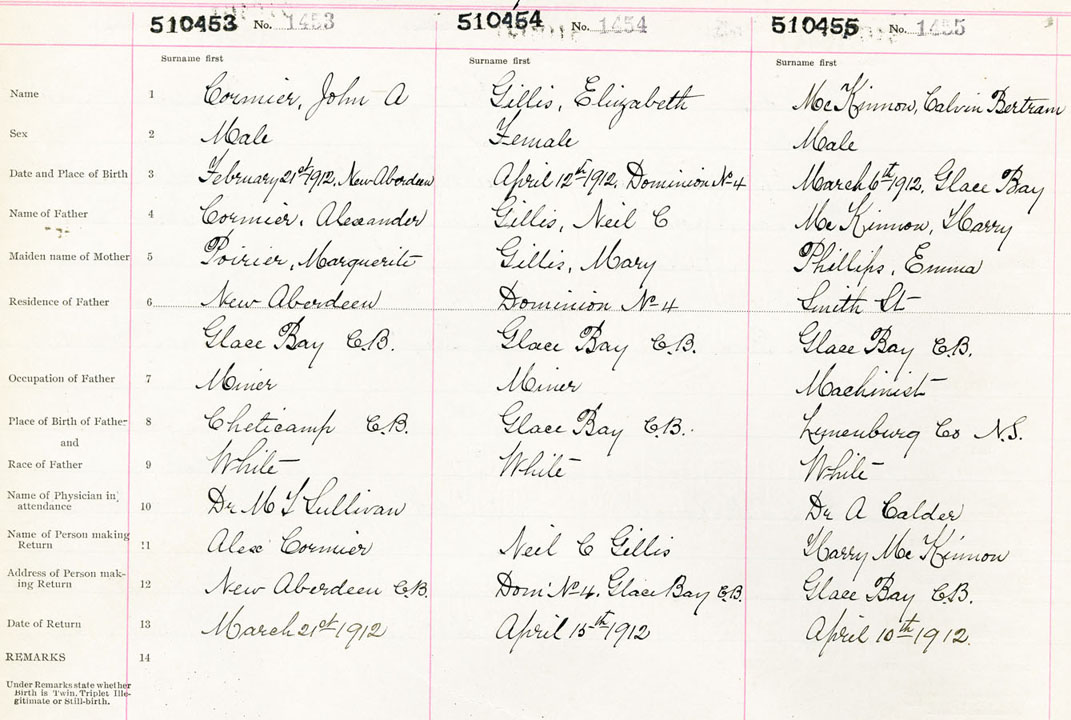 510453 No. 1453 510454 No. 1454 510455 No. 1455
Surname first Surname first Surname first
Name 1 Cormier, John A Gillis, Elizabeth McKinnon, Calvin Bertram
Sex 2 Male Female Male
Date and Place of Birth 3 February 21st 1912, New Aberdeen April 12th 1912, Dominion No 4 March 6th 1912, Glace Bay
Name of Father 4 Cormier, Alexander Gillis, Neil C McKinnon, Harry
Maiden name of Mother 5 Poirier, Marguerite Gillis, Mary Phillips, Emma
Residence of Father 6 New Aberdeen Dominion No 4 Smith St
Glace Bay C.B. Glace Bay C.B. Glace Bay C.B.
Occupation of Father 7 Miner Miner Machinist
Place of Birth of Father 8 Cheticamp C.B. Glace Bay C.B. Lunenburg Co N.S.
and
Race of Father 9 White White White
Name of Physician in attendance 10 Dr M Sullivan Dr A Calder
Name of Person making Return 11 Alex Cormier Neil C Gillis Harry McKinnon
Address of Person mak-ing Return 12 New Aberdeen C.B. Dom' No 4, Glace Bay C.B. Glace Bay C.B.
Date of Return 13 March 21st 1912 April 15th 1912 April 10th 1912.
REMARKS 14
Under Remarks state whether
Birth is Twin, Triplet Ille-
gitimate or Still-birth.